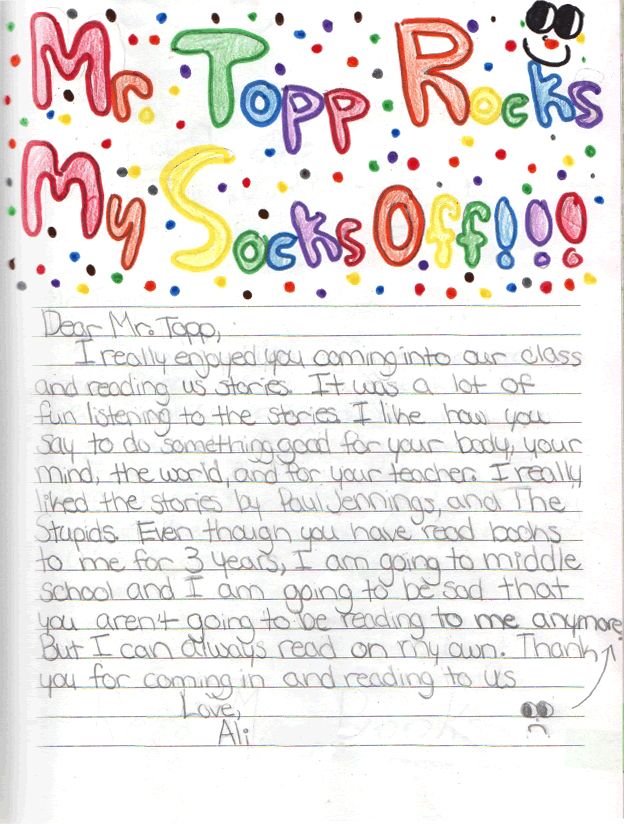 Mr. Topp Rocks
My Socks Off!!!
Dear Mr. Topp,
I really enjoyed you coming into our class
and reading us stories. It was a lot of
fun listening to the stories. I like how you
say to do something good for your body, your
mind, the world, and for your teacher. I really
liked the stories by Paul Jennings, and The
Stupids. Even though you have read books
to me for 3 years, I am going to middle
school and I am going to be sad that
you aren't going to be reading to me anymore.
But I can always read on my own. Thank
you for coming in and reading to us
Love,
Ali